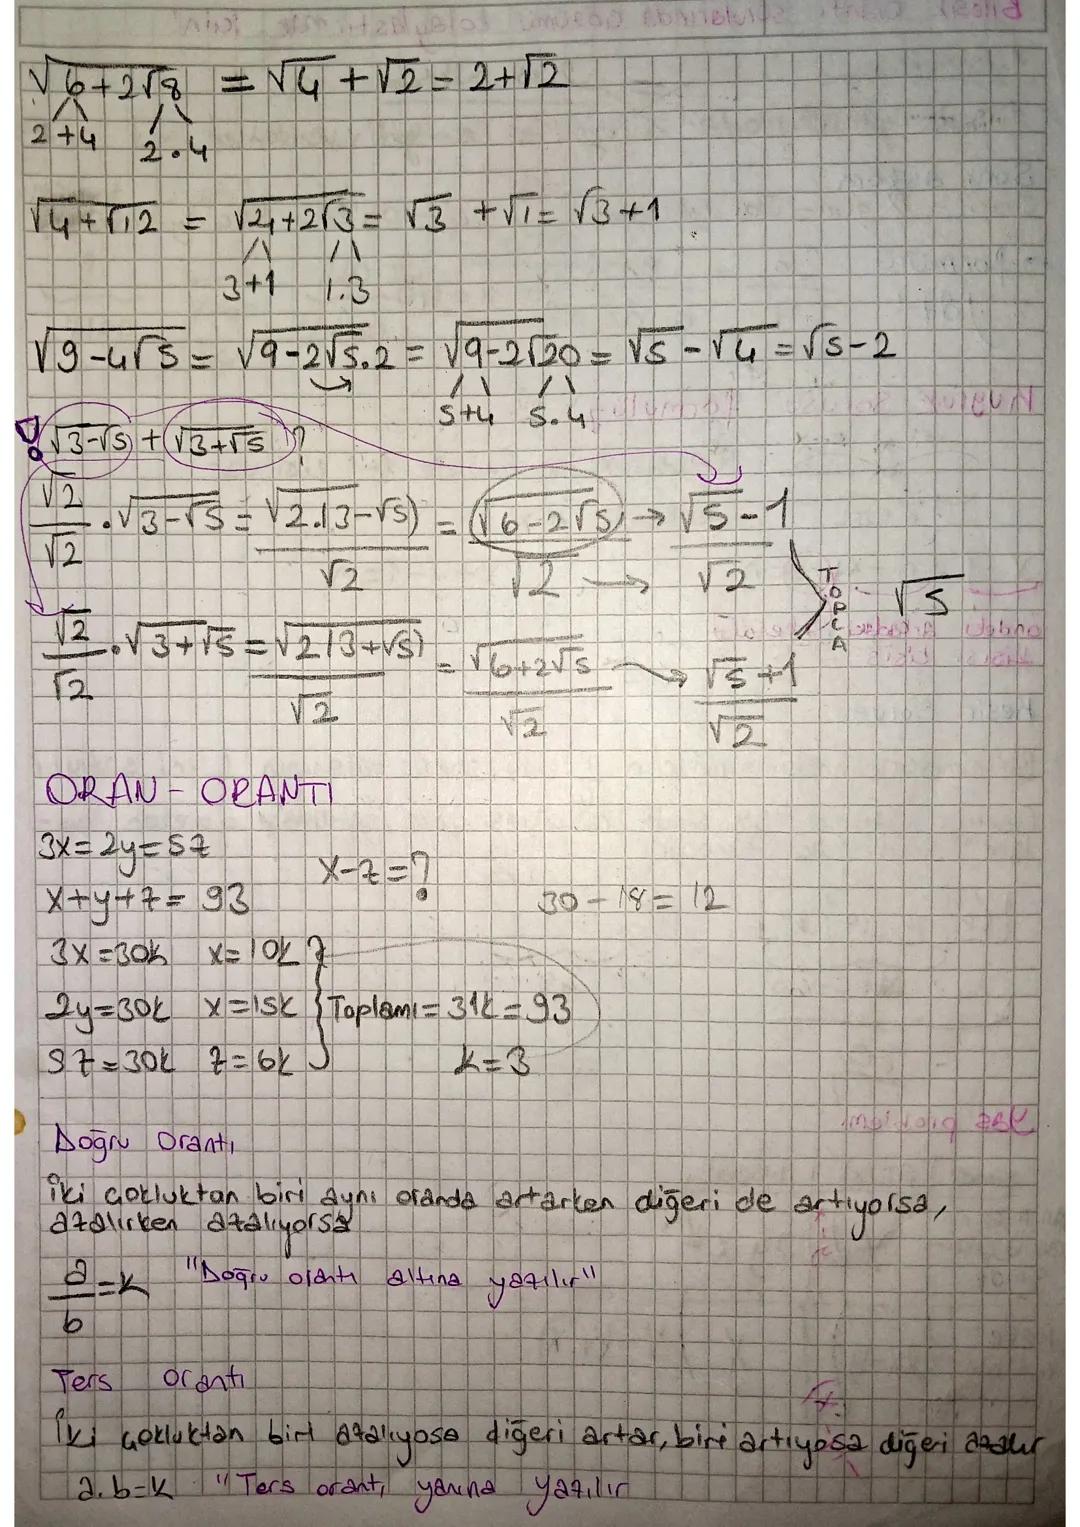 √6+2√8 = √4 + √2 = 2+√2
2+4 2.4
√4+√12 = √4+2√3 = √3 + √1 = √3+1
3+1 1.3
√9-4√5 = √9-2√5.2 = √9-2√20 = √5 - √4 = √5-2
5+4 5.4
! √3-√5 + √3+√5 ?
√2/√2 . √3-√5 = √2.(3-√5)/√2 = √6-2√5/√2 → √5-1/√2
TOPLA √5
√2/√2 . √3+√5 = √2(3+√5)/√2 = √6+2√5/√2 → √5+1/√2
ORAN - ORANTI
3x=2y=5z
x-z=?
x+y+z= 93
30-18=12
3x=30k x=10k
2y=30k x=15k Toplamı=31k=93
5z=30k z=6k k=3
Doğru Orantı
İki çokluktan biri aynı oranda artarken diğeri de artıyorsa,
azalırken azalıyorsa
a/b=k "Doğru orantı altına yazılır"
Ters orantı
İki çokluktan biri azalıyosa diğeri artar, biri artıyosa diğeri azalır
a.b=k "Ters orantı yanına yazılır